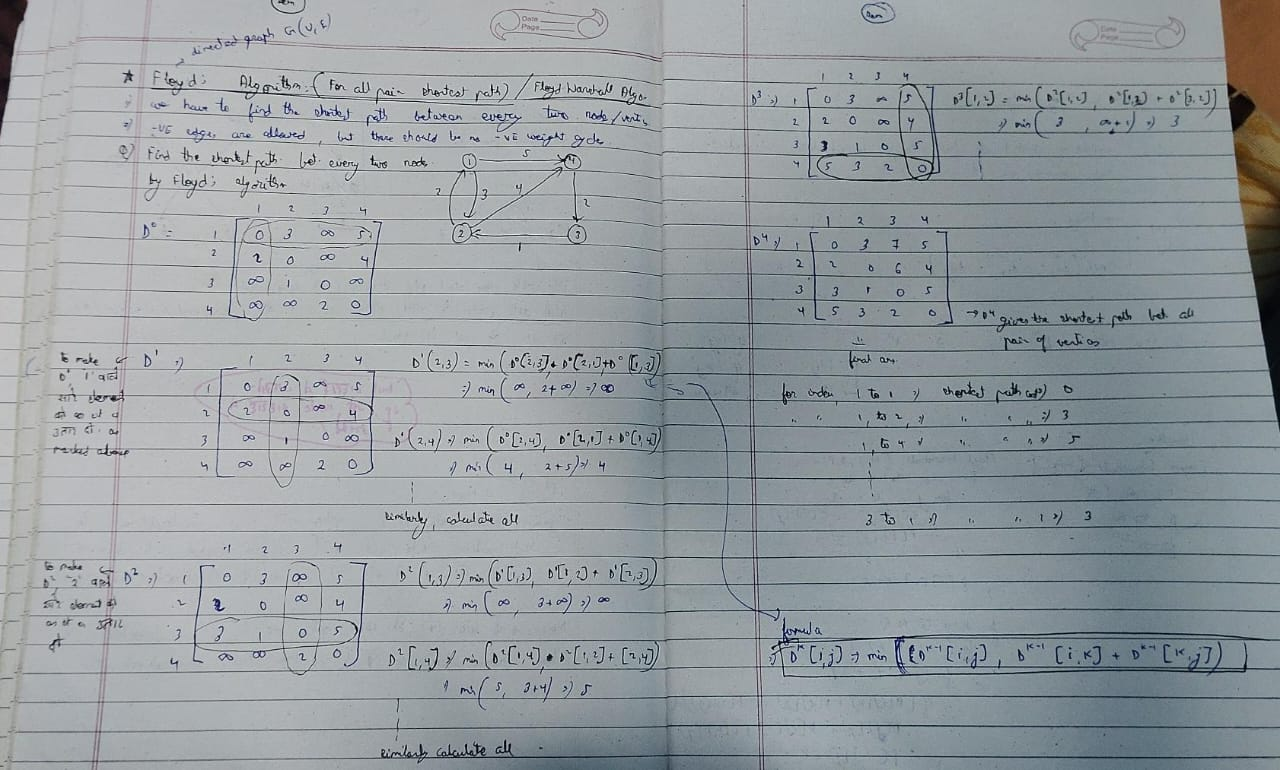 directed graph G(V,E)
Date
Page
* Floyd's Algorithm. (For all pair shortest path) / Floyd Warshall Algo.
1) we have to find the shortest path between every two node/vertex
2) -VE edges are allowed, but there should be no -VE weight cycle
Q) Find the shortest path bet every two node
by Floyd's algorithm
1 5 4
2 3 4 2
2 1 3
1 2 3 4
D⁰ = 1 0 3 ∞ 5
2 2 0 ∞ 4
3 ∞ 1 0 ∞
4 ∞ ∞ 2 0
to make
D¹ '1'
सारे element
as it is
packed above
D¹ ⇒
1 2 3 4
1 0 3 ∞ 5
2 2 0 ∞ 4
3 ∞ 1 0 ∞
4 ∞ ∞ 2 0
D¹(2,3) = min(D⁰[2,3], D⁰[2,1]+D⁰[1,3])
⇒ min(∞, 2+∞) ⇒ ∞
D¹(2,4) ⇒ min(D⁰[2,4], D⁰[2,1]+D⁰[1,4])
⇒ min(4, 2+5) ⇒ 4
similarly, calculate all
to make
D² '2'
सारे element
as it is
D² ⇒
1 2 3 4
1 0 3 ∞ 5
2 2 0 ∞ 4
3 3 1 0 5
4 ∞ ∞ 2 0
D²(1,3) ⇒ min(D¹[1,3], D¹[1,2] + D¹[2,3])
⇒ min(∞, 3+∞) ⇒ ∞
D²[1,4] ⇒ min(D²[1,4], D²[1,2] + [2,4])
⇒ min(5, 3+4) ⇒ 5
similarly calculate all
Date
Page
1 2 3 4
D³ ⇒ 1 0 3 ∞ 5
2 2 0 ∞ 4
3 3 1 0 5
4 5 3 2 0
D³[1,2] = min(D²[1,2], D²[1,3] + D²[3,2])
⇒ min(3, ∞+1) ⇒ 3
1 2 3 4
D⁴ ⇒ 1 0 3 7 5
2 2 0 6 4
3 3 1 0 5
4 5 3 2 0
→ D⁴ gives the shortest path bet all
pair of vertices
final ans.
for index, 1 to 1 ⇒ shortest path cost ⇒ 0
" " 1 to 2 ⇒ " " " ⇒ 3
1 to 4 ⇒ " " " ⇒ 5
3 to 1 ⇒ " " " ⇒ 3
formula
⇒ Dᴷ[i,j] ⇒ min[(Dᴷ⁻¹[i,j], Dᴷ⁻¹[i,K] + Dᴷ⁻¹[K,j])]